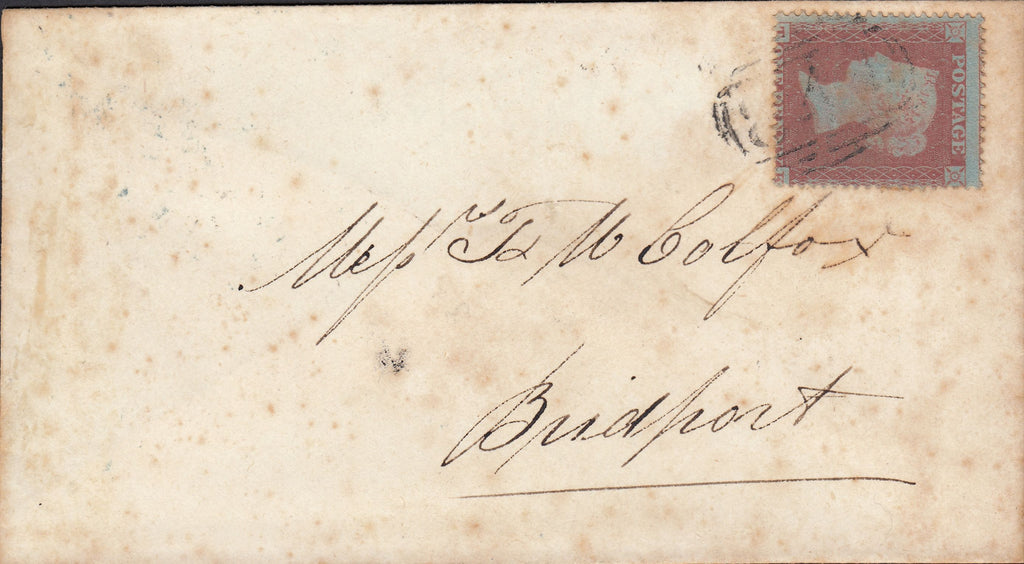 POSTAGE
Messrs T & W Colfox
Bridport